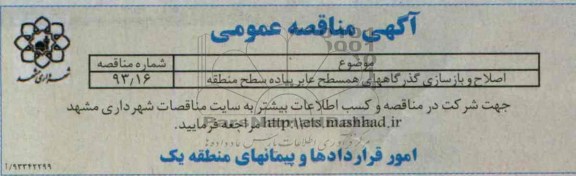 آگهی مناقصه عمومی
موضوع
شماره مناقصه
اصلاح و بازسازی گذرگاههای همسطح عابر پیاده سطح منطقه
۹۳٫۱۶
جهت شرکت در مناقصه و کسب اطلاعات بیشتر به سایت مناقصات شهرداری مشهد
http:\\ets.mashhad.ir مراجعه فرمایید.
امور قراردادها و پیمانهای منطقه یک
شهرداری مشهد
۱/۹۳۳۴۲۲۹۹